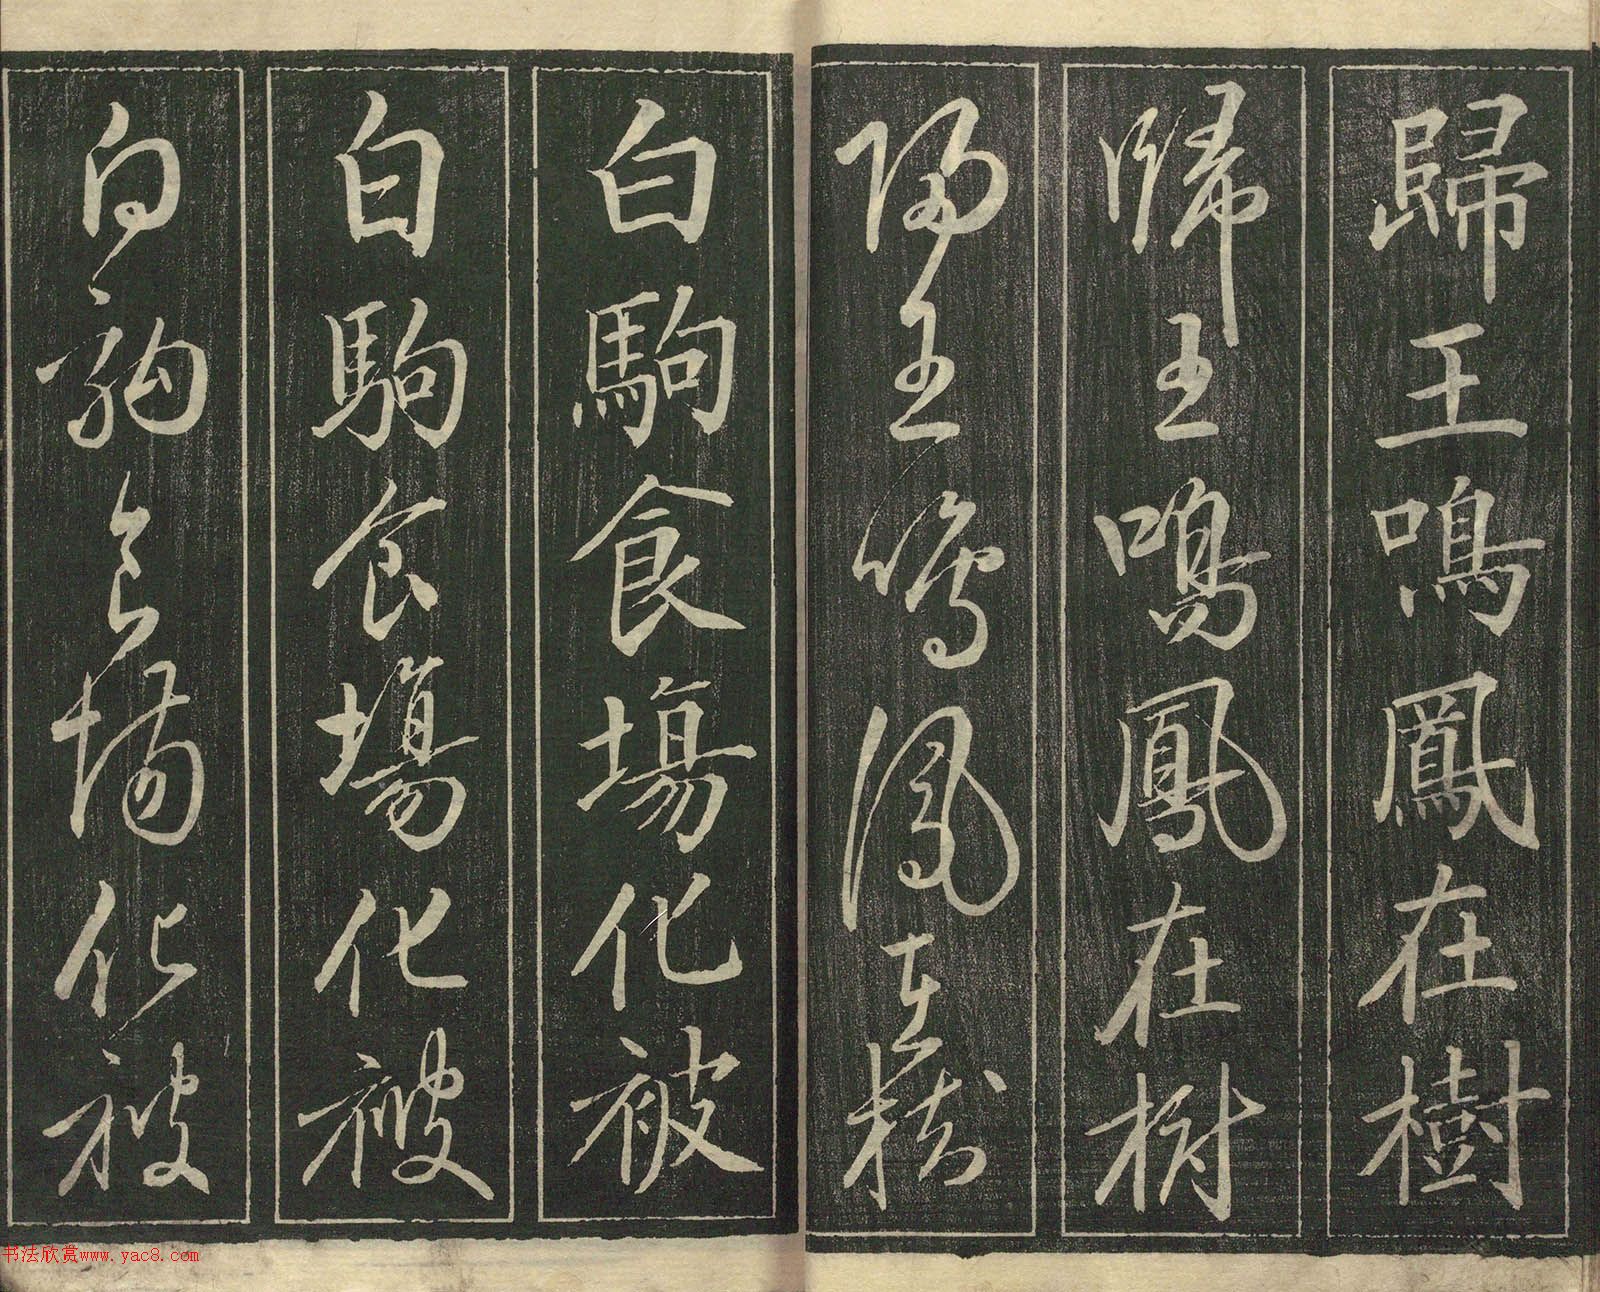 歸王鳴鳳在樹
歸王鳴鳳在樹
歸王鳴鳳在樹
白駒食場化被
白駒食場化被
白駒食場化被
书法欣赏www.yac8.com